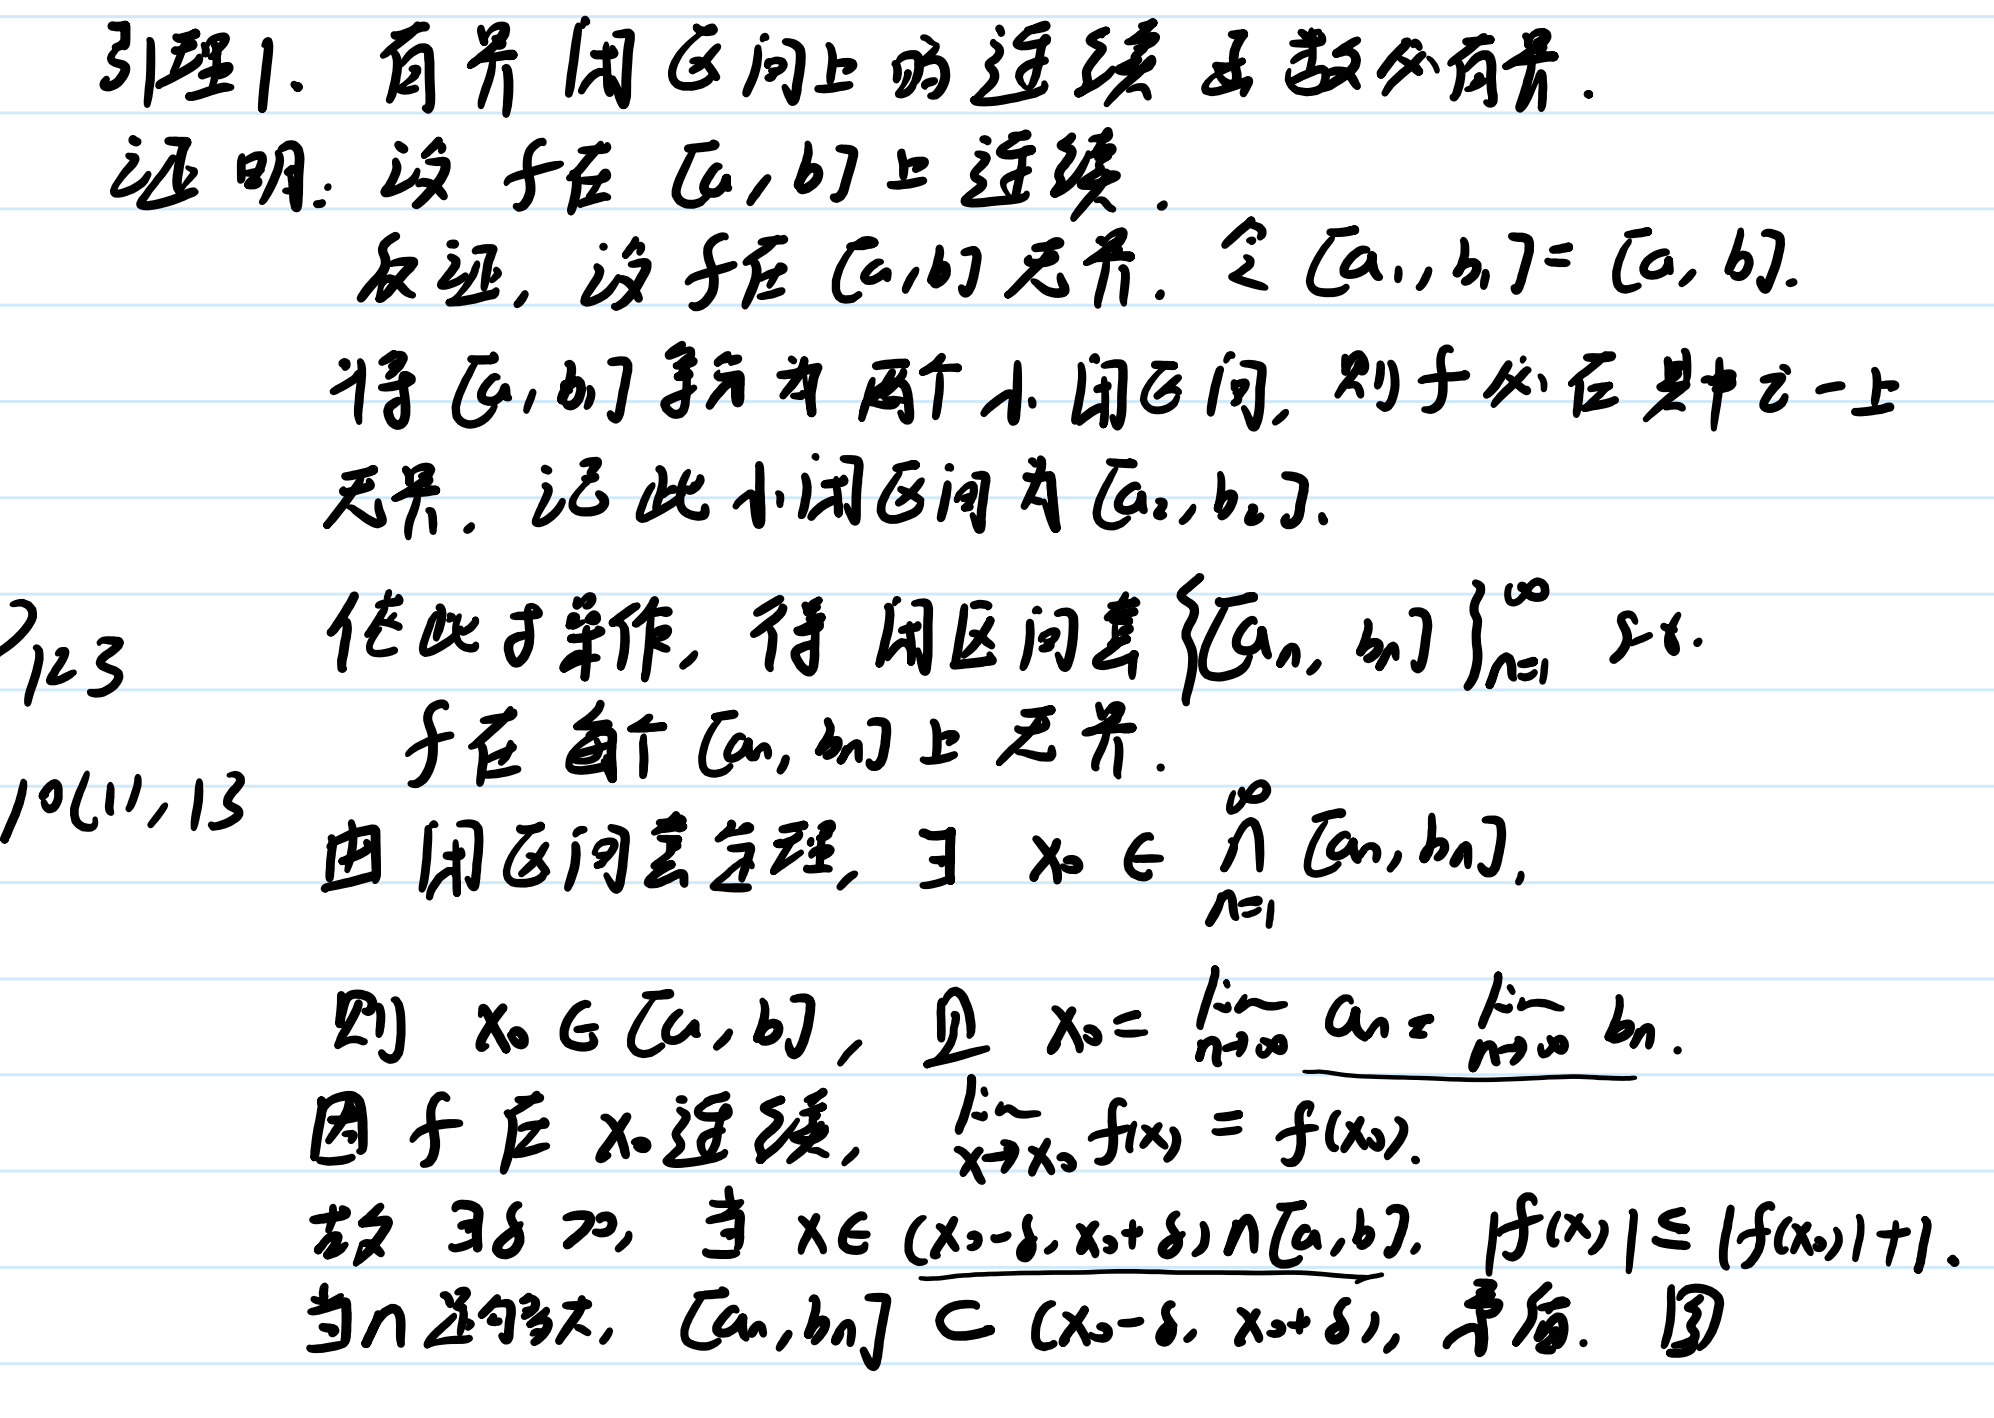 引理1. 有界闭区间上的连续函数必有界.
证明: 设 f在 [a, b] 上连续.
反证, 设 f在 [a,b] 无界. 令 [a₁, b₁] = [a, b].
将 [a₁, b₁] 等分为 两个小闭区间, 则 f 必在其中之一上
无界. 记此小闭区间为 [a₂, b₂].
依此才操作, 得 闭区间套 {[aₙ, bₙ]}_{n=1}^{∞} s.t.
P123
f在 每个 [aₙ, bₙ] 上 无界.
10(1), 13
由闭区间套定理, ∃ x₀ ∈ ⋂_{n=1}^{∞} [aₙ, bₙ],
则 x₀ ∈ [a, b], 且 x₀ = lim_{n→∞} aₙ = lim_{n→∞} bₙ.
因 f 在 x₀ 连续, lim_{x→x₀} f(x) = f(x₀).
故 ∃δ>0, 当 x∈ (x₀-δ, x₀+δ)∩[a,b], |f(x)| ≤ |f(x₀)|+1.
当n足够大, [aₙ, bₙ] ⊂ (x₀-δ, x₀+δ), 矛盾.